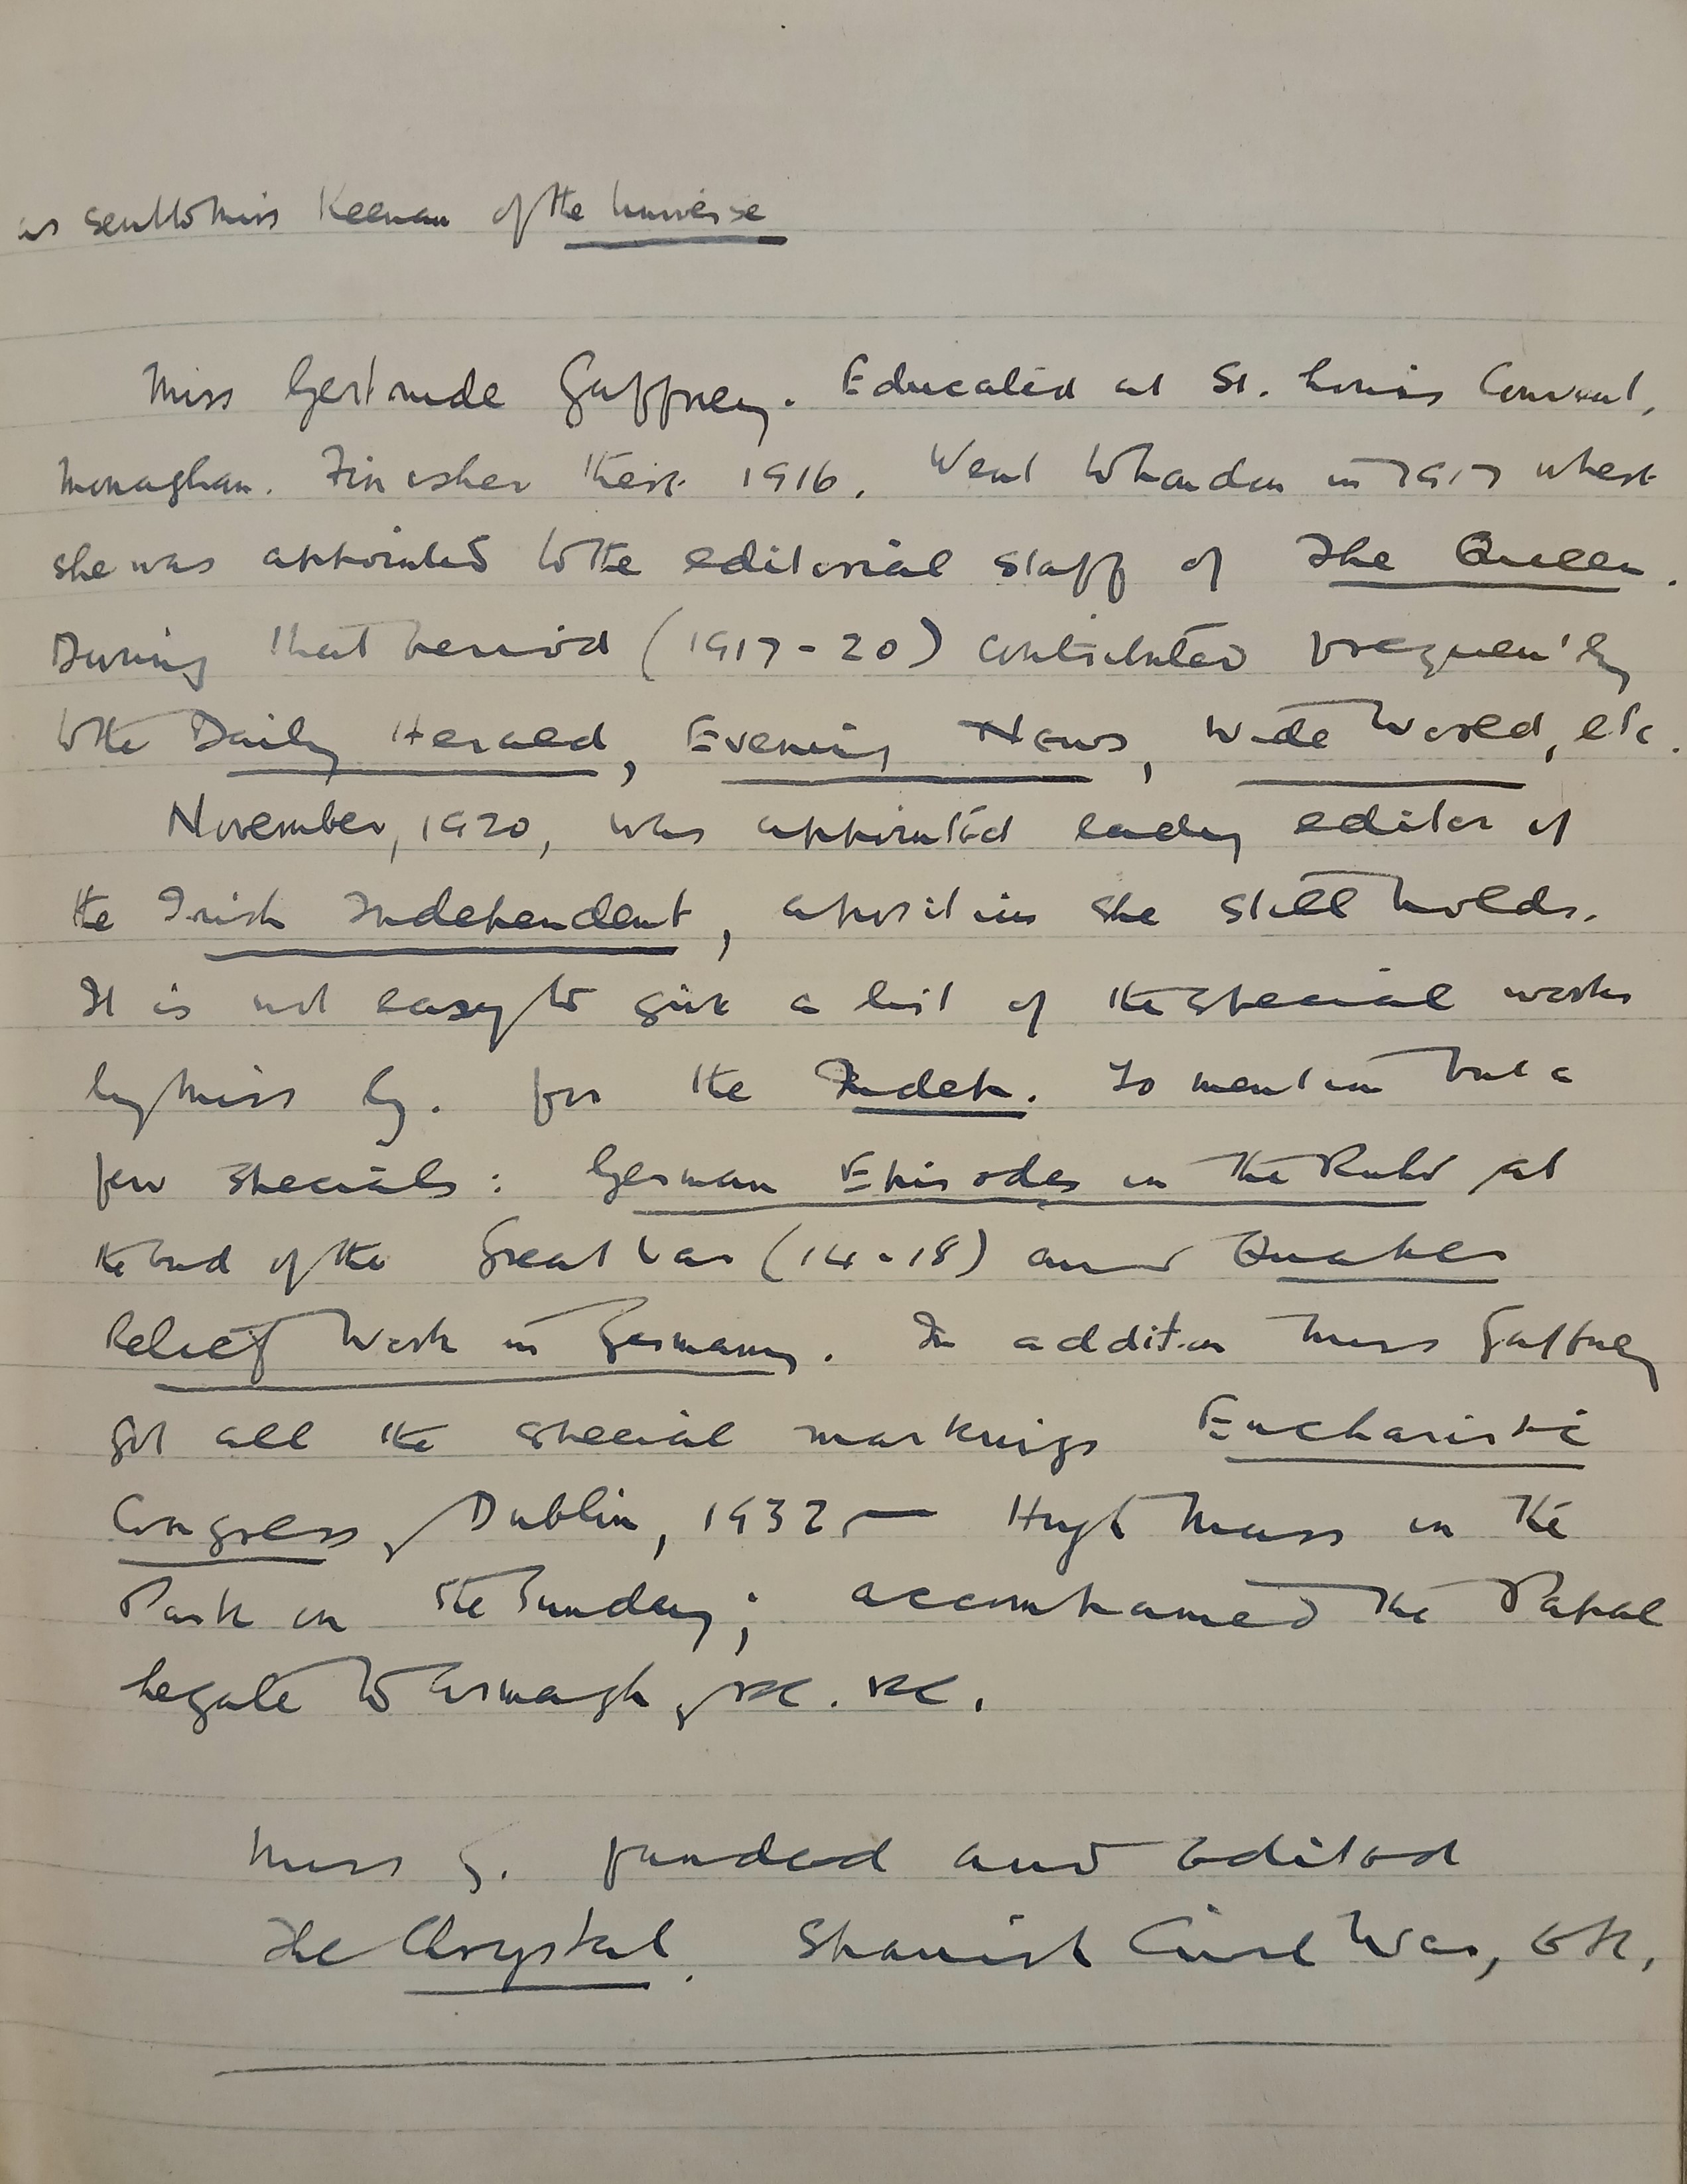 as sent to Miss Keenan of the Universe
Miss Gertrude Gaffney. Educated at St. Louis Convent,
Monaghan. Finished there 1916. Went to London in 1917 where
she was appointed to the editorial staff of The Queen.
During that period (1917-20) contributed frequently
to the Daily Herald, Evening News, Wide World, etc.
November, 1920, was appointed lady editor of
the Irish Independent, a position she still holds.
It is not easy to give a list of the special works
by Miss G. for the Indep. To mention but a
few specials: German Episodes in the Ruhr at
the end of the Great War (14-18) and Quaker
Relief Work in Germany. In addition Miss Gaffney
got all the special markings Eucharistic
Congress, Dublin, 1932, — High Mass in the
Park on the Sunday; accompanied the Papal
Legate to Armagh, &c. &c.
Miss G. funded and edited
The Chrystal. Spanish Civil War, etc.